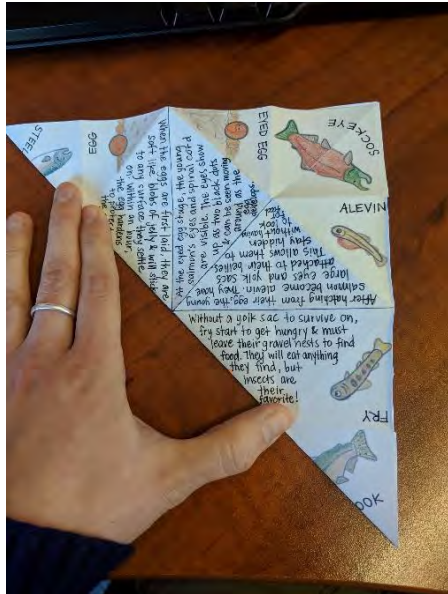 STEEL
EGG
When the eggs are first laid, they are
soft like blobs of jelly & will stick
to any surface they settle
on. Within an hour,
the egg hardens
to protect
the
EYED EGG
At the eyed egg stage, the young
salmon's eyes and spinal cord
are visible. The eyes show
up as two black dots
& can be seen moving
around as the
egg
develops.
SOCKEYE
ALEVIN
After hatching from their egg, the young
salmon become alevin. They have
large eyes and yolk sacs
attached to their bellies.
This allows them to
stay hidden
without having
to look
FRY
Without a yolk sac to survive on,
fry start to get hungry & must
leave their gravel nests to find
food. They will eat anything
they find, but
insects are
their
favorite!
OOK